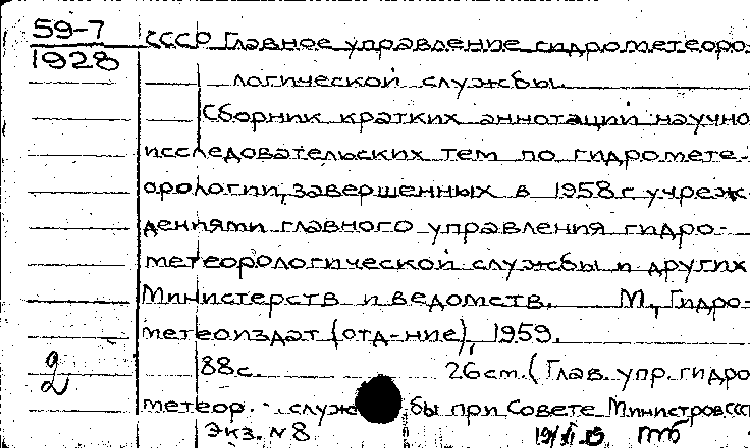 59-7
1928
СССР Главное управление гидрометеоро-
логической службы.
Сборник кратких аннотаций научно
исследовательских тем по гидромете-
орологии, завершенных в 1958 г. учреж-
дениями главного управления гидро-
метеорологической службы и других
Министерств и ведомств. М., Гидро-
метеоиздат (отд-ние), 1959.
88 с. 26 см. (Глав. упр. гидро
метеор. службы при Совете Министров СССР
2
Экз. N 8